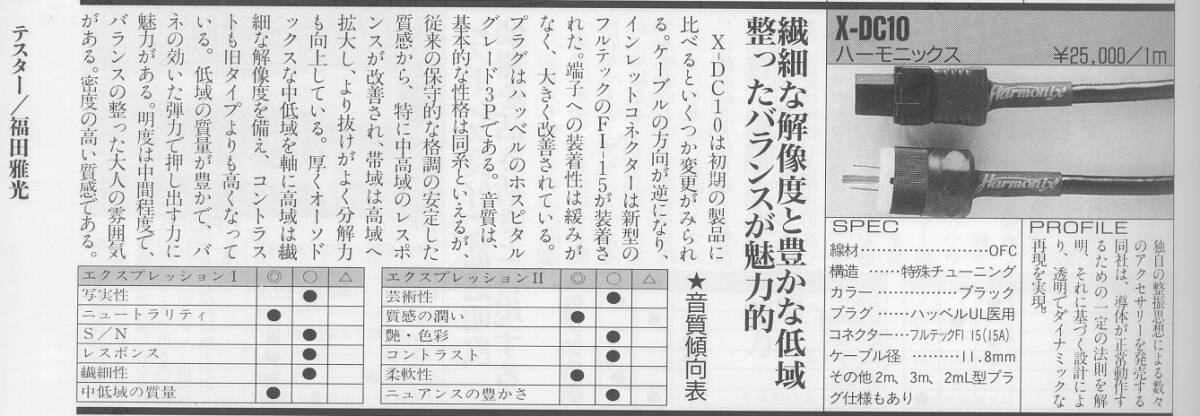 X-DC10
ハーモニックス
¥25,000/1m
Harmonix
Harmonix
繊細な解像度と豊かな低域
整ったバランスが魅力的
X-DC10は初期の製品に
比べるといくつか変更がみられ
る。ケーブルの方向が逆になり、
インレットコネクターは新型の
フルテックのFI-15が装着さ
れた。端子への装着性は緩みが
なく、大きく改善されている。
プラグはハッベルのホスピタル
グレード3Pである。音質は、
基本的な性格は同系といえるが
従来の保守的な格調の安定した
質感から、特に中高域のレスポ
ンスが改善され、帯域は高域へ
拡大し、より抜けがよく分解力
も向上している。厚くオーソド
ックスな中低域を軸に高域は繊
細な解像度を備え、コントラス
トも旧タイプよりも高くなって
いる。低域の質量が豊かで、バ
ネの効いた弾力で押し出す力に
魅力がある。明度は中間程度で、
バランスの整った大人の雰囲気
がある。密度の高い質感である。
テスター/福田雅光
★音質傾向表
エクスプレッションⅠ ◎ ○ △
写実性 ●
ニュートラリティ ●
S/N ●
レスポンス ●
繊細性 ●
中低域の質量 ●
エクスプレッションⅡ ◎ ○ △
芸術性 ●
質感の潤い ●
艶・色彩 ●
コントラスト ●
柔軟性 ●
ニュアンスの豊かさ ●
SPEC
線材……………………OFC
構造……特殊チューニング
カラー……………ブラック
プラグ……ハッベルUL医用
コネクター…フルテックFI 15(15A)
ケーブル径………11.8mm
その他2m、3m、2mL型プラ
グ仕様もあり
PROFILE
独自の整振思想による数々
のアクセサリーを発売する
同社は、導体が正常動作す
るための一定の法則を解
明、それに基づく設計によ
り、透明でダイナミックな
再現を実現。